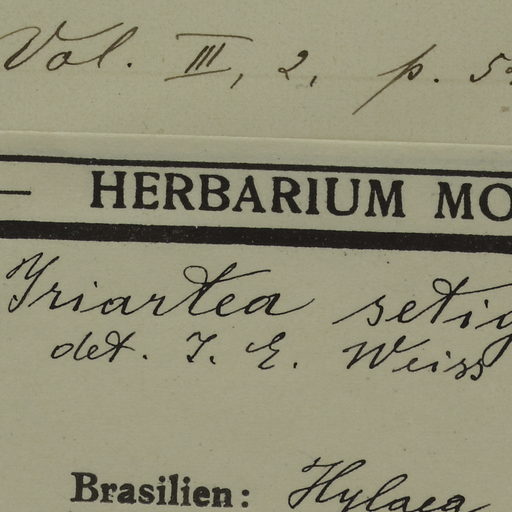 Vol. III, 2, p. 5
HERBARIUM MO
Iriartea setig
det. J. E. Weiss
Brasilien: Hylaea